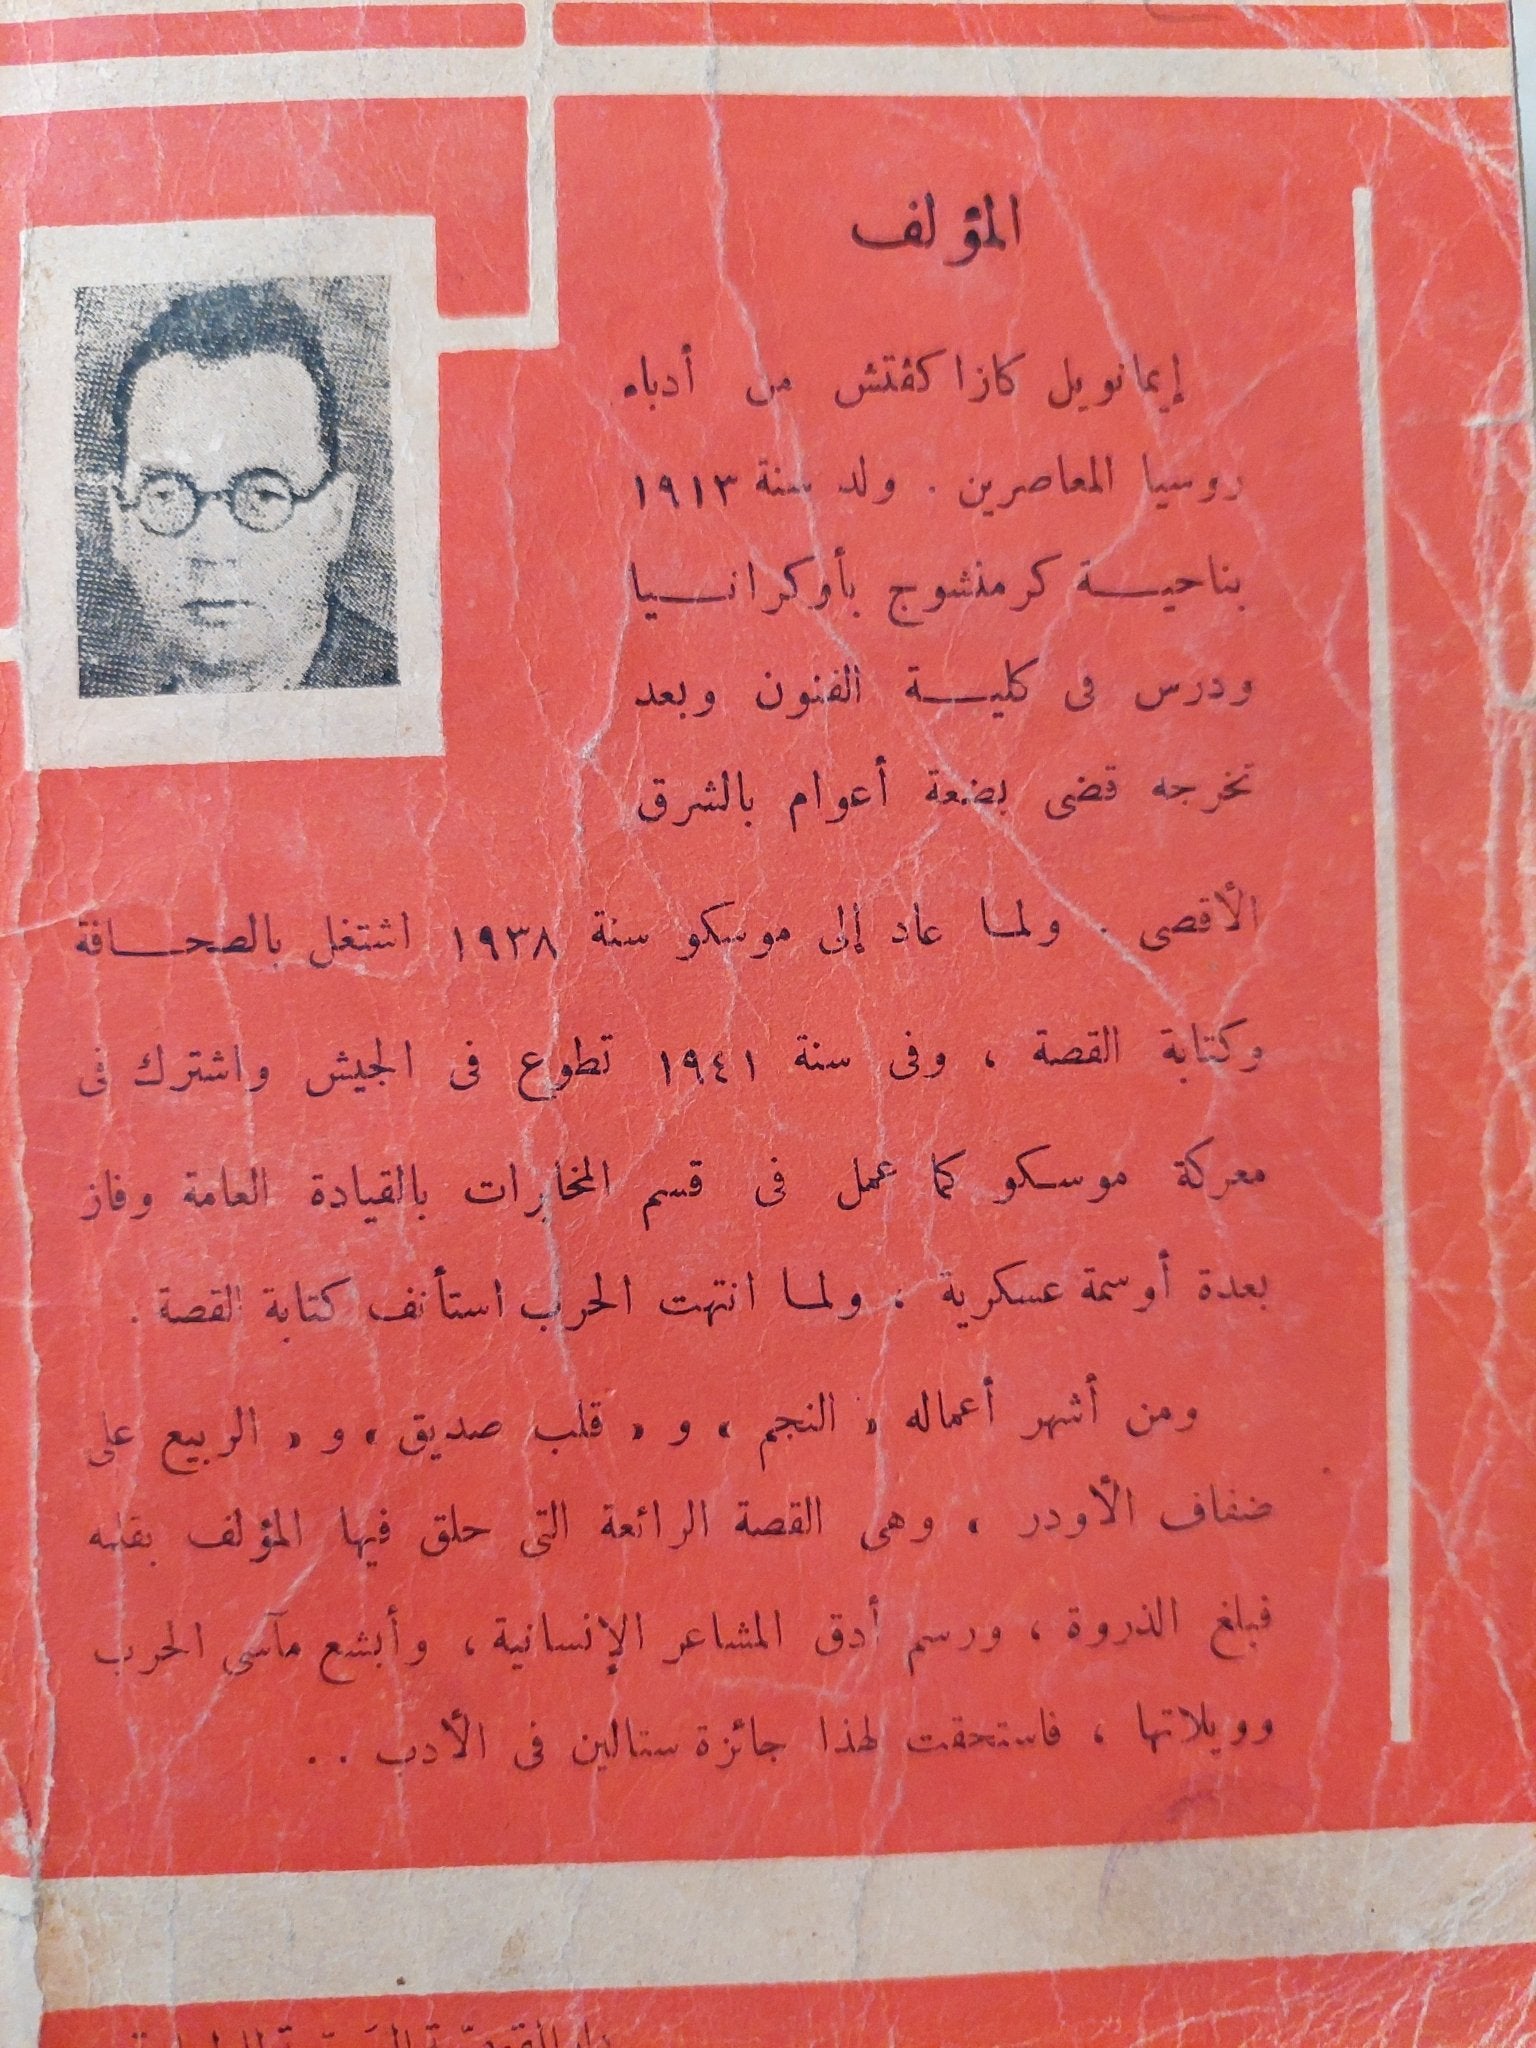 المؤلف
إيمانويل كازاكفتش من أدباء
روسيا المعاصرين . ولد سنة ١٩١٣
بناحيـــة كرمنشوج بأوكرانـــيا
ودرس فى كليـــة الفنون وبعد
تخرجه قضى بضعة أعوام بالشرق
الأقصى . ولمـا عاد إلى موسكو سنة ١٩٣٨ اشتغل بالصحـــافة
وكتابة القصة ، وفى سنة ١٩٤١ تطوع فى الجيش واشترك فى
معركة موسـكو كما عمل فى قسم المخابرات بالقيادة العامة وفاز
بعدة أوسمة عسكرية ، ولمـا انتهت الحرب استأنف كتابة القصة .
ومن أشهر أعماله « النجم » و « قلب صديق » و « الربيع على
ضفاف الأودر » وهى القصة الرائعة التى حلق فيها المؤلف بقلمه
فبلغ الذروة ، ورسم أدق المشاعر الإنسانية ، وأبشع مآسى الحرب
وويلاتها ، فاستحقت لهذا جائزة ستالين فى الأدب . .